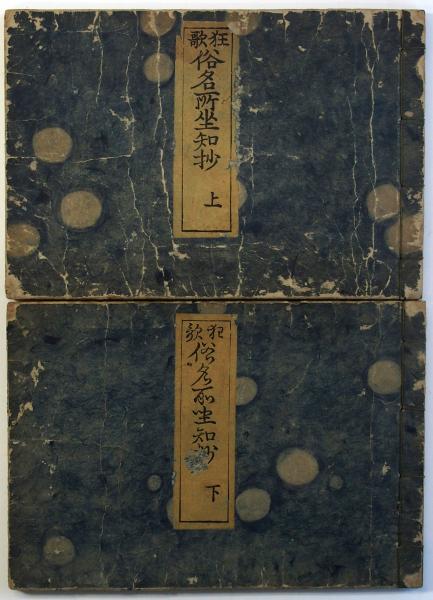 狂歌
俗名所坐知抄
上
狂歌
俗名所坐知抄
下